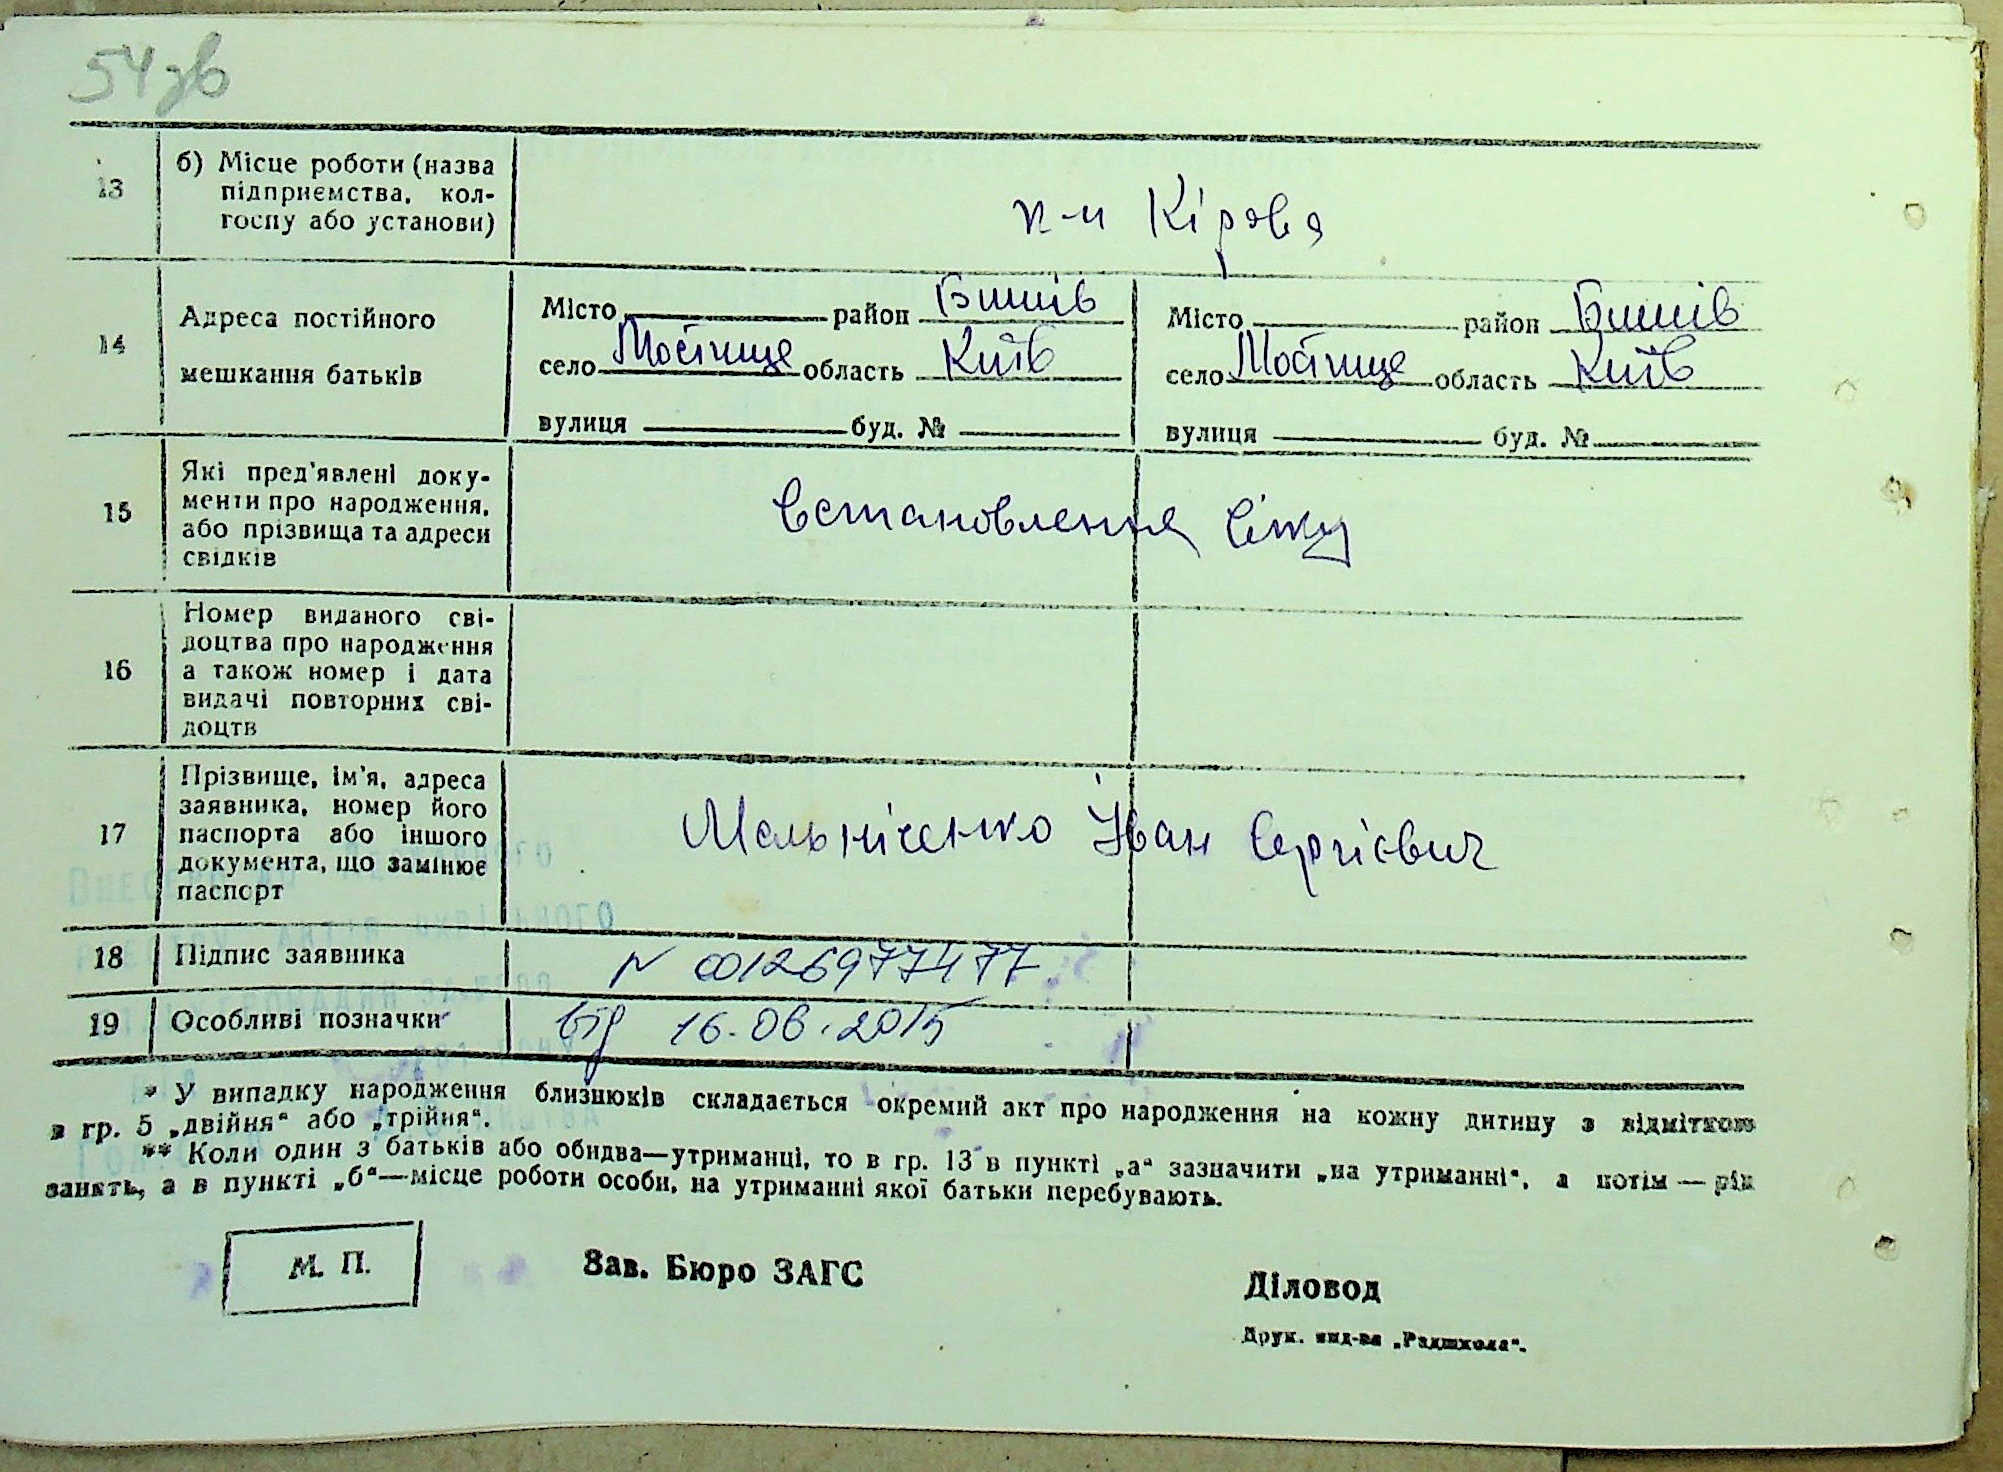 54 зв
13
б) Місце роботи (назва
підприємства, кол-
госпу або установи)
к-п Кірова
14
Адреса постійного
мешкання батьків
Місто район Бишів
село Мостище область Київ
вулиця буд. №
Місто район Бишів
село Мостище область Київ
вулиця буд. №
15
Які пред'явлені доку-
менти про народження,
або прізвища та адреси
свідків
встановлення віку
16
Номер виданого сві-
доцтва про народження
а також номер і дата
видачі повторних сві-
доцтв
17
Прізвище, ім'я, адреса
заявника, номер його
паспорта або іншого
документа, що замінює
паспорт
Мельніченко Іван Сергієвич
18
Підпис заявника
N 00126977477
19
Особливі позначки
від 16.06.2015
* У випадку народження близнюків складається окремий акт про народження на кожну дитину з відміткою
в гр. 5 „двійня“ або „трійня“.
** Коли один з батьків або обидва—утриманці, то в гр. 13 в пункті „а“ зазначити „на утриманні“, а потім — рід
занять, а в пункті „б“—місце роботи особи, на утриманні якої батьки перебувають.
М. П.
Зав. Бюро ЗАГС
Діловод
Друк. вид-ва „Радшкола“.